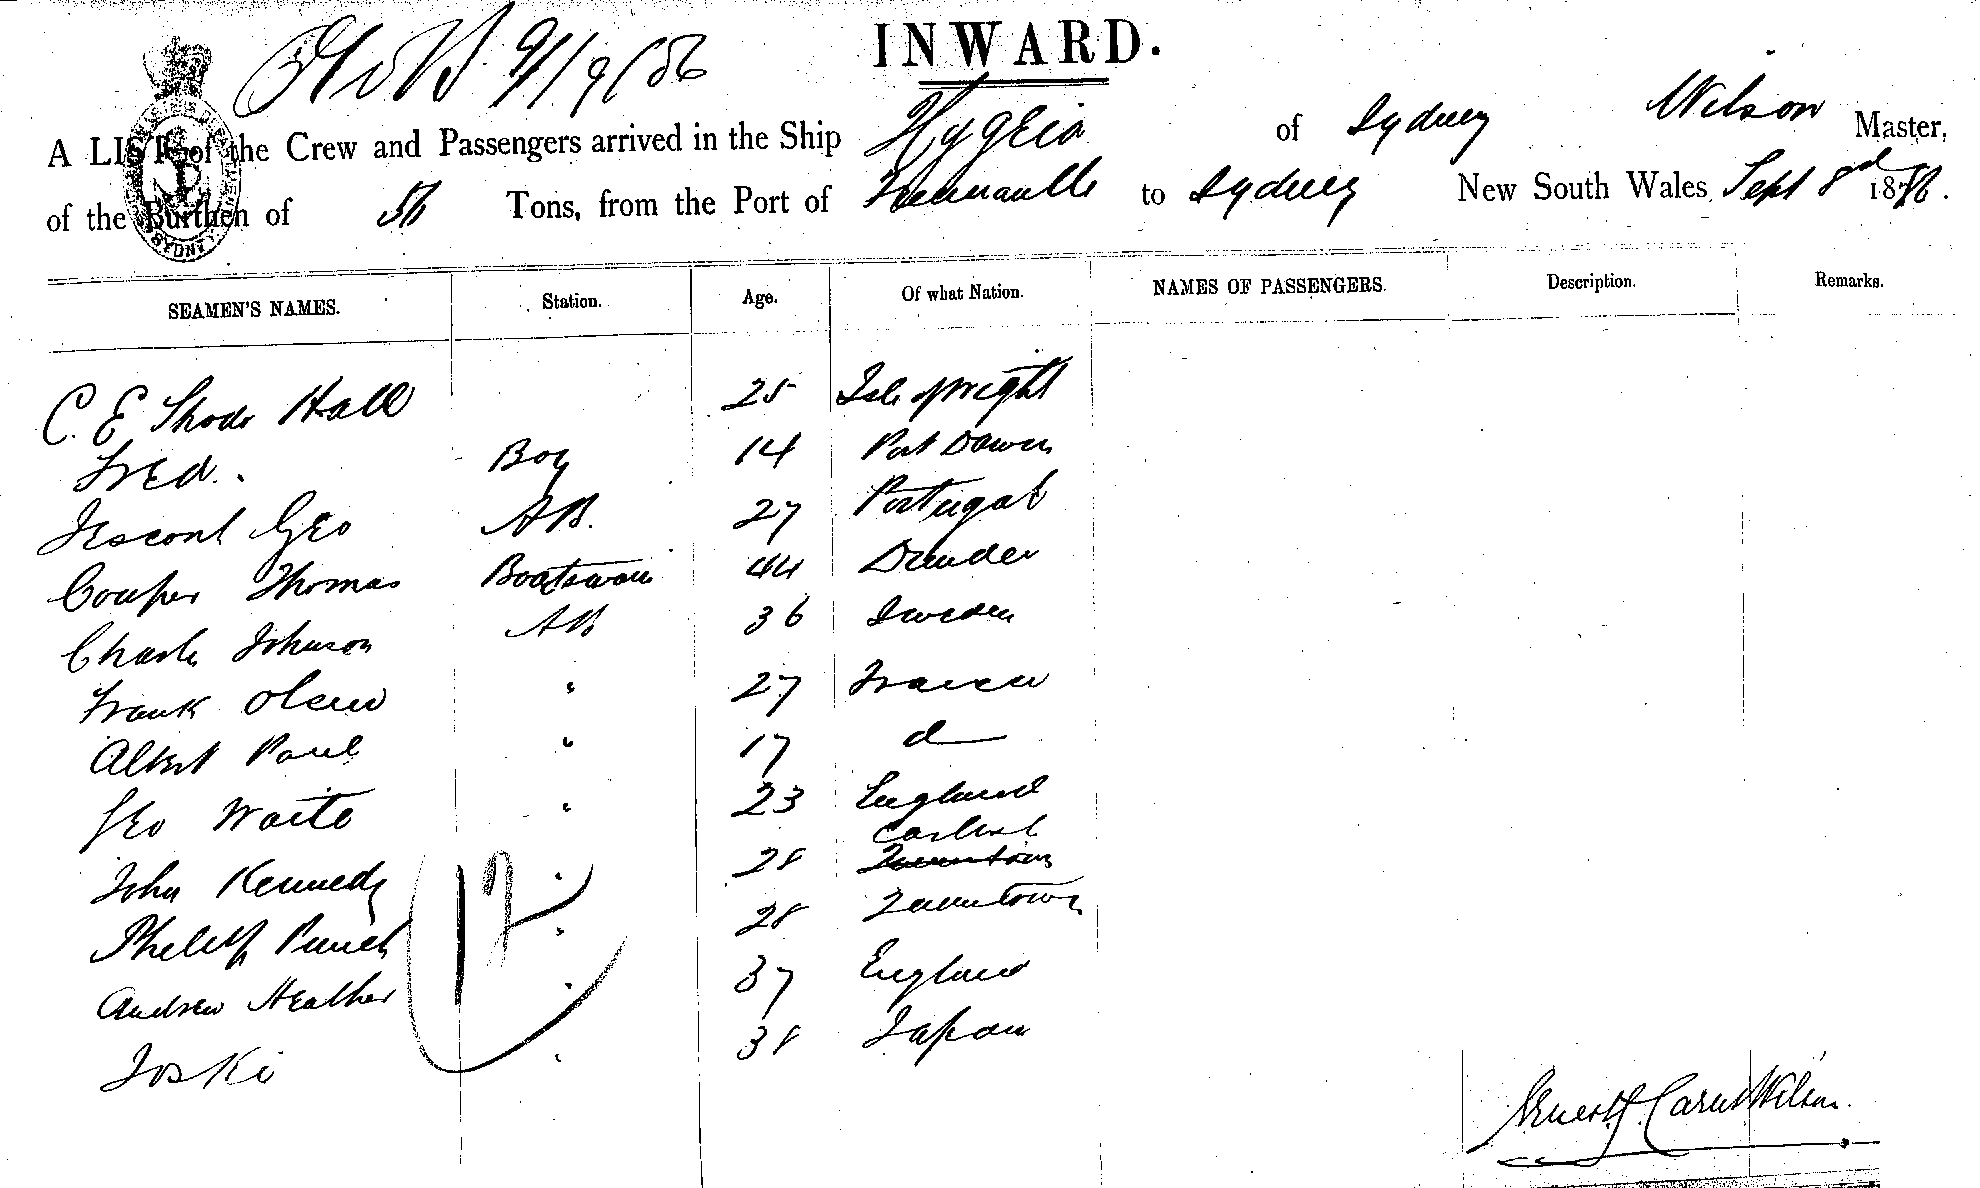 INWARD.
9/9/86
A LIST of the Crew and Passengers arrived in the Ship Hygeia of Sydney Wilson Master,
of the Burthen of Tons, from the Port of to Sydney New South Wales, Sept 8d 1886.
SEAMEN'S NAMES. Station. Age. Of what Nation. NAMES OF PASSENGERS. Description. Remarks.
C. E Hall 25 Isle of Wight
Fred. Boy 14 Port Darwin
Geo AB. 27 Portugal
Couper Thomas Boatswain 44 Dundee
Charls Johnson AB 36 Sweden
Frank Olsen " 27 France
Albert Paul " 17 do
Geo Waite " 23 England
John Kennedy " 28
Phelip Punch " 28 Queenstown
Andrew Heather " 37 England
Joski " 38 Japan
12
Ernest Carus Wilson.